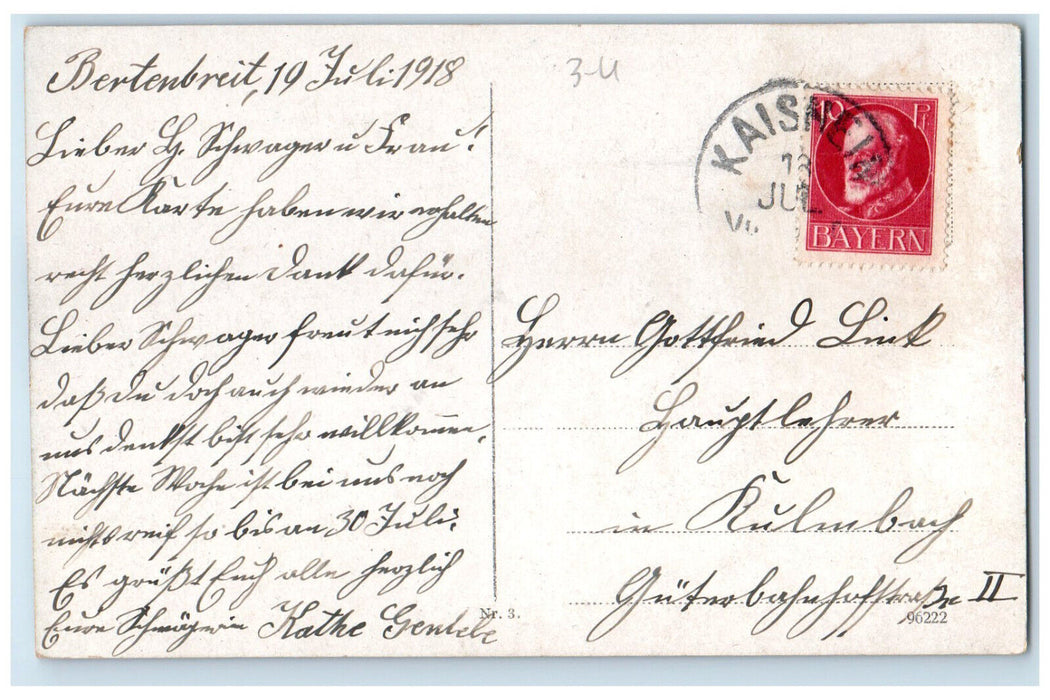 Bertenbreit, 19 Juli 1918
3-U
Lieber H. Schwager u Frau!
Eure Karte haben wir erhalten
recht herzlichen Dank dafür.
Lieber Schwager freut mich sehr
daß Du doch auch wieder an
uns denkst bist sehr willkommen,
Nächste Woche ist bei uns noch
nichts reif so bis an 30 Juli.
Es grüßt Euch alle herzlich
Eure Schwägerin Kathe
KAISHEIM
18
JUL
10 Pf
BAYERN
Herrn Gottfried Link
Hauptlehrer
in Kulmbach
Güterbahnhofstraße II
Nr. 3.
96222